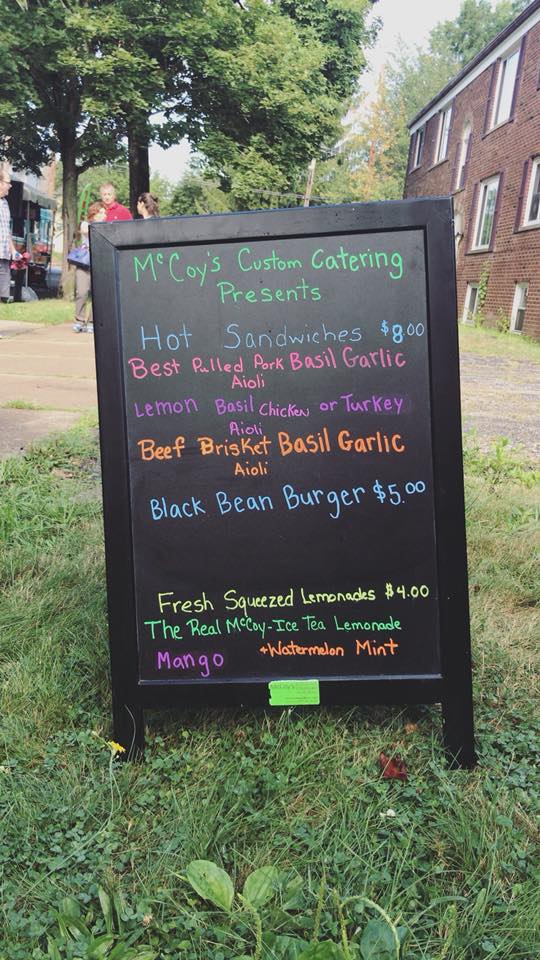 McCoy's Custom Catering
Presents
Hot Sandwiches $8.00
Best Pulled Pork Basil Garlic
Aioli
Lemon Basil Chicken or Turkey
Aioli
Beef Brisket Basil Garlic
Aioli
Black Bean Burger $5.00
Fresh Squeezed Lemonades $4.00
The Real McCoy-Ice Tea Lemonade
Mango +Watermelon Mint